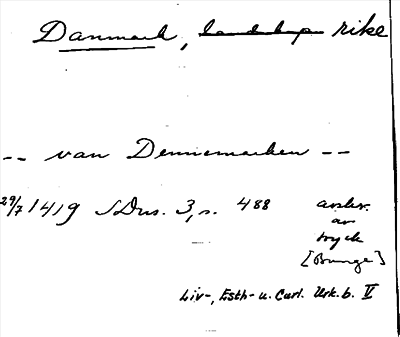 Danmark, ~~landskap~~ rike
-- van Dennemarken --
29/7 1419 SDns. 3, s. 488 avskr.
av
tryck
[Bunge]
Liv-, Esth- u. Curl. Urk. b. V